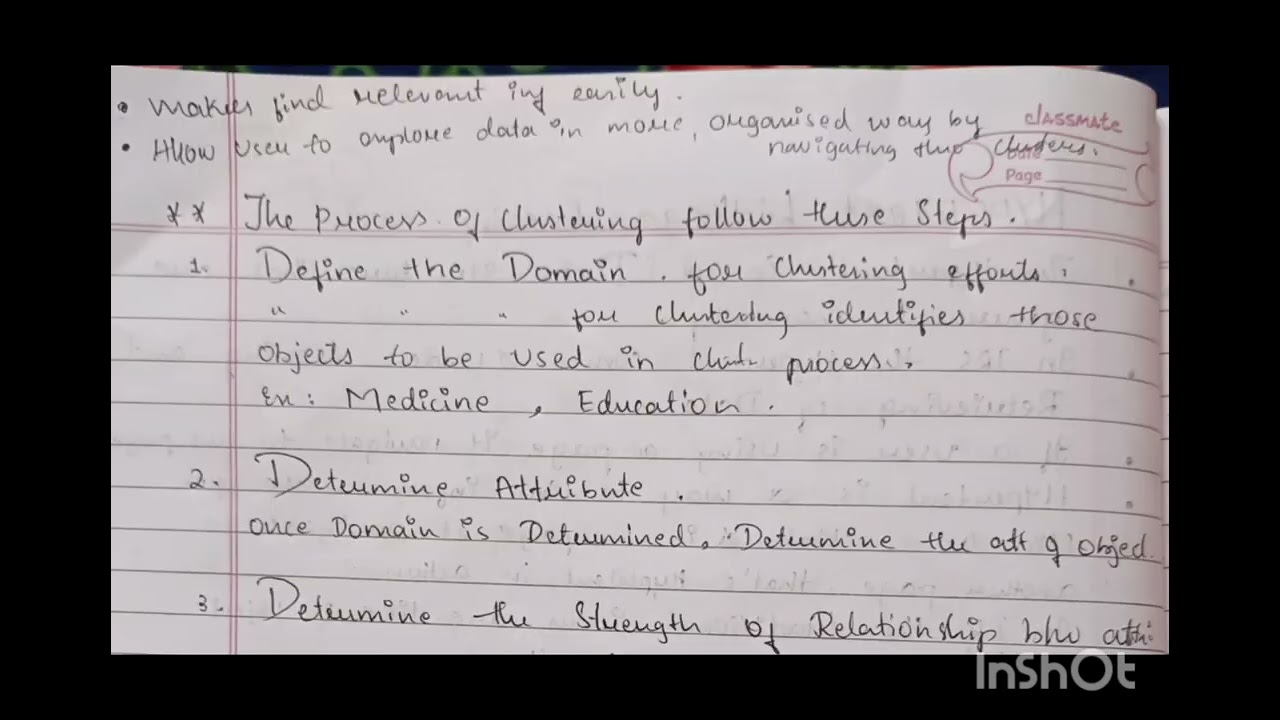 • Makes find relevant inf easily.
• Allow user to explore data in more organised way by
navigating thro clusters.
classmate
Date
Page
** The Process of Clustering follow these Steps.
1. Define the Domain for Clustering efforts.
" " " for Clustering identifies those
objects to be used in clust. process.
Ex: Medicine, Education.
2. Determine Attribute.
once Domain is Determined, Determine the att of object.
3. Determine the Strength of Relationship b/w attri.
InShOt